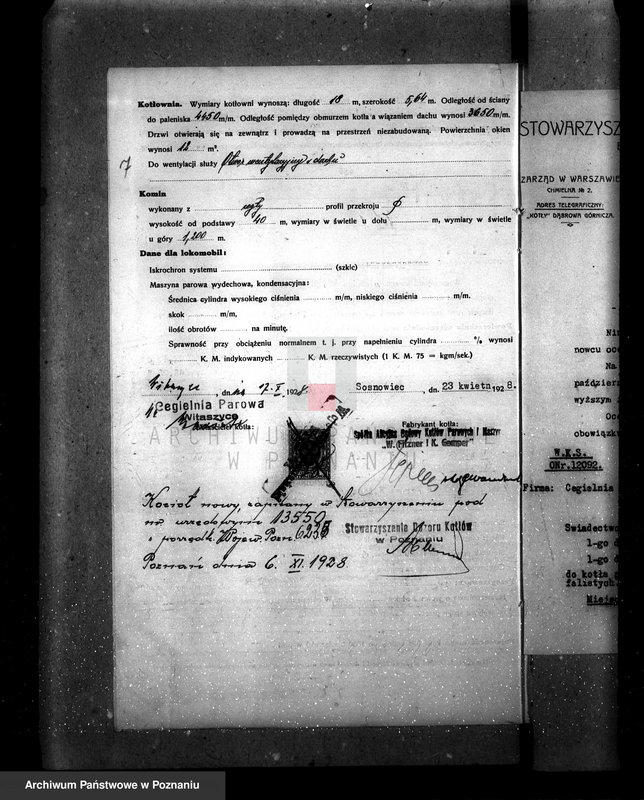 Kotłownia. Wymiary kotłowni wynoszą: długość 18 m, szerokość 5,64 m. Odległość od ściany
do paleniska 4450 m/m. Odległość pomiędzy obmurzem kotła a wiązaniem dachu wynosi 3650 m/m.
Drzwi otwierają się na zewnątrz i prowadzą na przestrzeń niezabudowaną. Powierzchnia okien
wynosi 12 m².
7
Do wentylacji służy Otwór wentylacyjny w dachu
Komin
wykonany z cegły profil przekroju
wysokość od podstawy 40 m, wymiary w świetle u dołu m, wymiary w świetle
u góry 1,200 m.
Dane dla lokomobil:
Iskrochron systemu (szkic)
Maszyna parowa wydechowa, kondensacyjna:
Średnica cylindra wysokiego ciśnienia m/m, niskiego ciśnienia m/m.
skok m/m,
ilość obrotów na minutę.
Sprawność przy obciążeniu normalnem t. j. przy napełnieniu cylindra % wynosi
K. M. indykowanych K. M. rzeczywistych (1 K. M. 75 = kgm/sek.)
Witaszyce, dnia 17. X 1928
Sosnowiec, dn. 23 kwietn 1928.
Cegielnia Parowa
Witaszyce
kotła:
Fabrykant kotła:
Spółka Akcyjna Budowy Kotłów Parowych i Maszyn
"W. Fitzner i K. Gamper"
Kocioł nowy, zapisany w Stowarzyszeniu pod
nr urzędowym 13550
i porządk. Wojew. Pozn
Stowarzyszenie Dozoru Kotłów
w Poznaniu
Poznań dnia 6. XI. 1928
ARCHIWUM
W POZNANIU
STOWARZYSZ
ZARZĄD W WARSZAWIE
CHMIELNA № 2.
ADRES TELEGRAFICZNY:
„KOTŁY" DĄBROWA GÓRNICZA.
Ni
nowcu oce
Na
paździer
wyższym
Oc
obowiązk
W.K.S.
ONr.12092.
Firma: Cegielnia
Świadectwo
1-go d
1-go d
do kotła
falistych
Miejsc
Archiwum Państwowe w Poznaniu